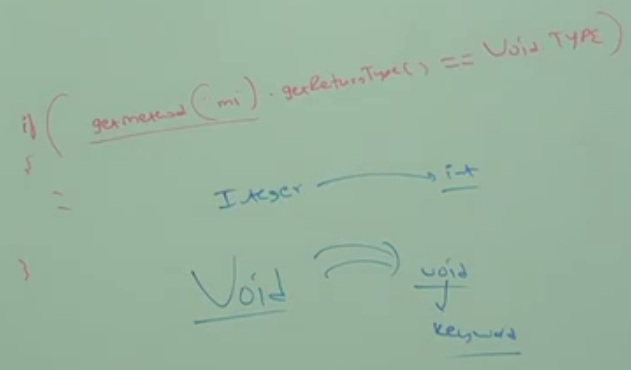 if ( getmethod( mi ) . getReturnType( ) == Void.TYPE )
{
=
Integer → int
}
Void void
keyword